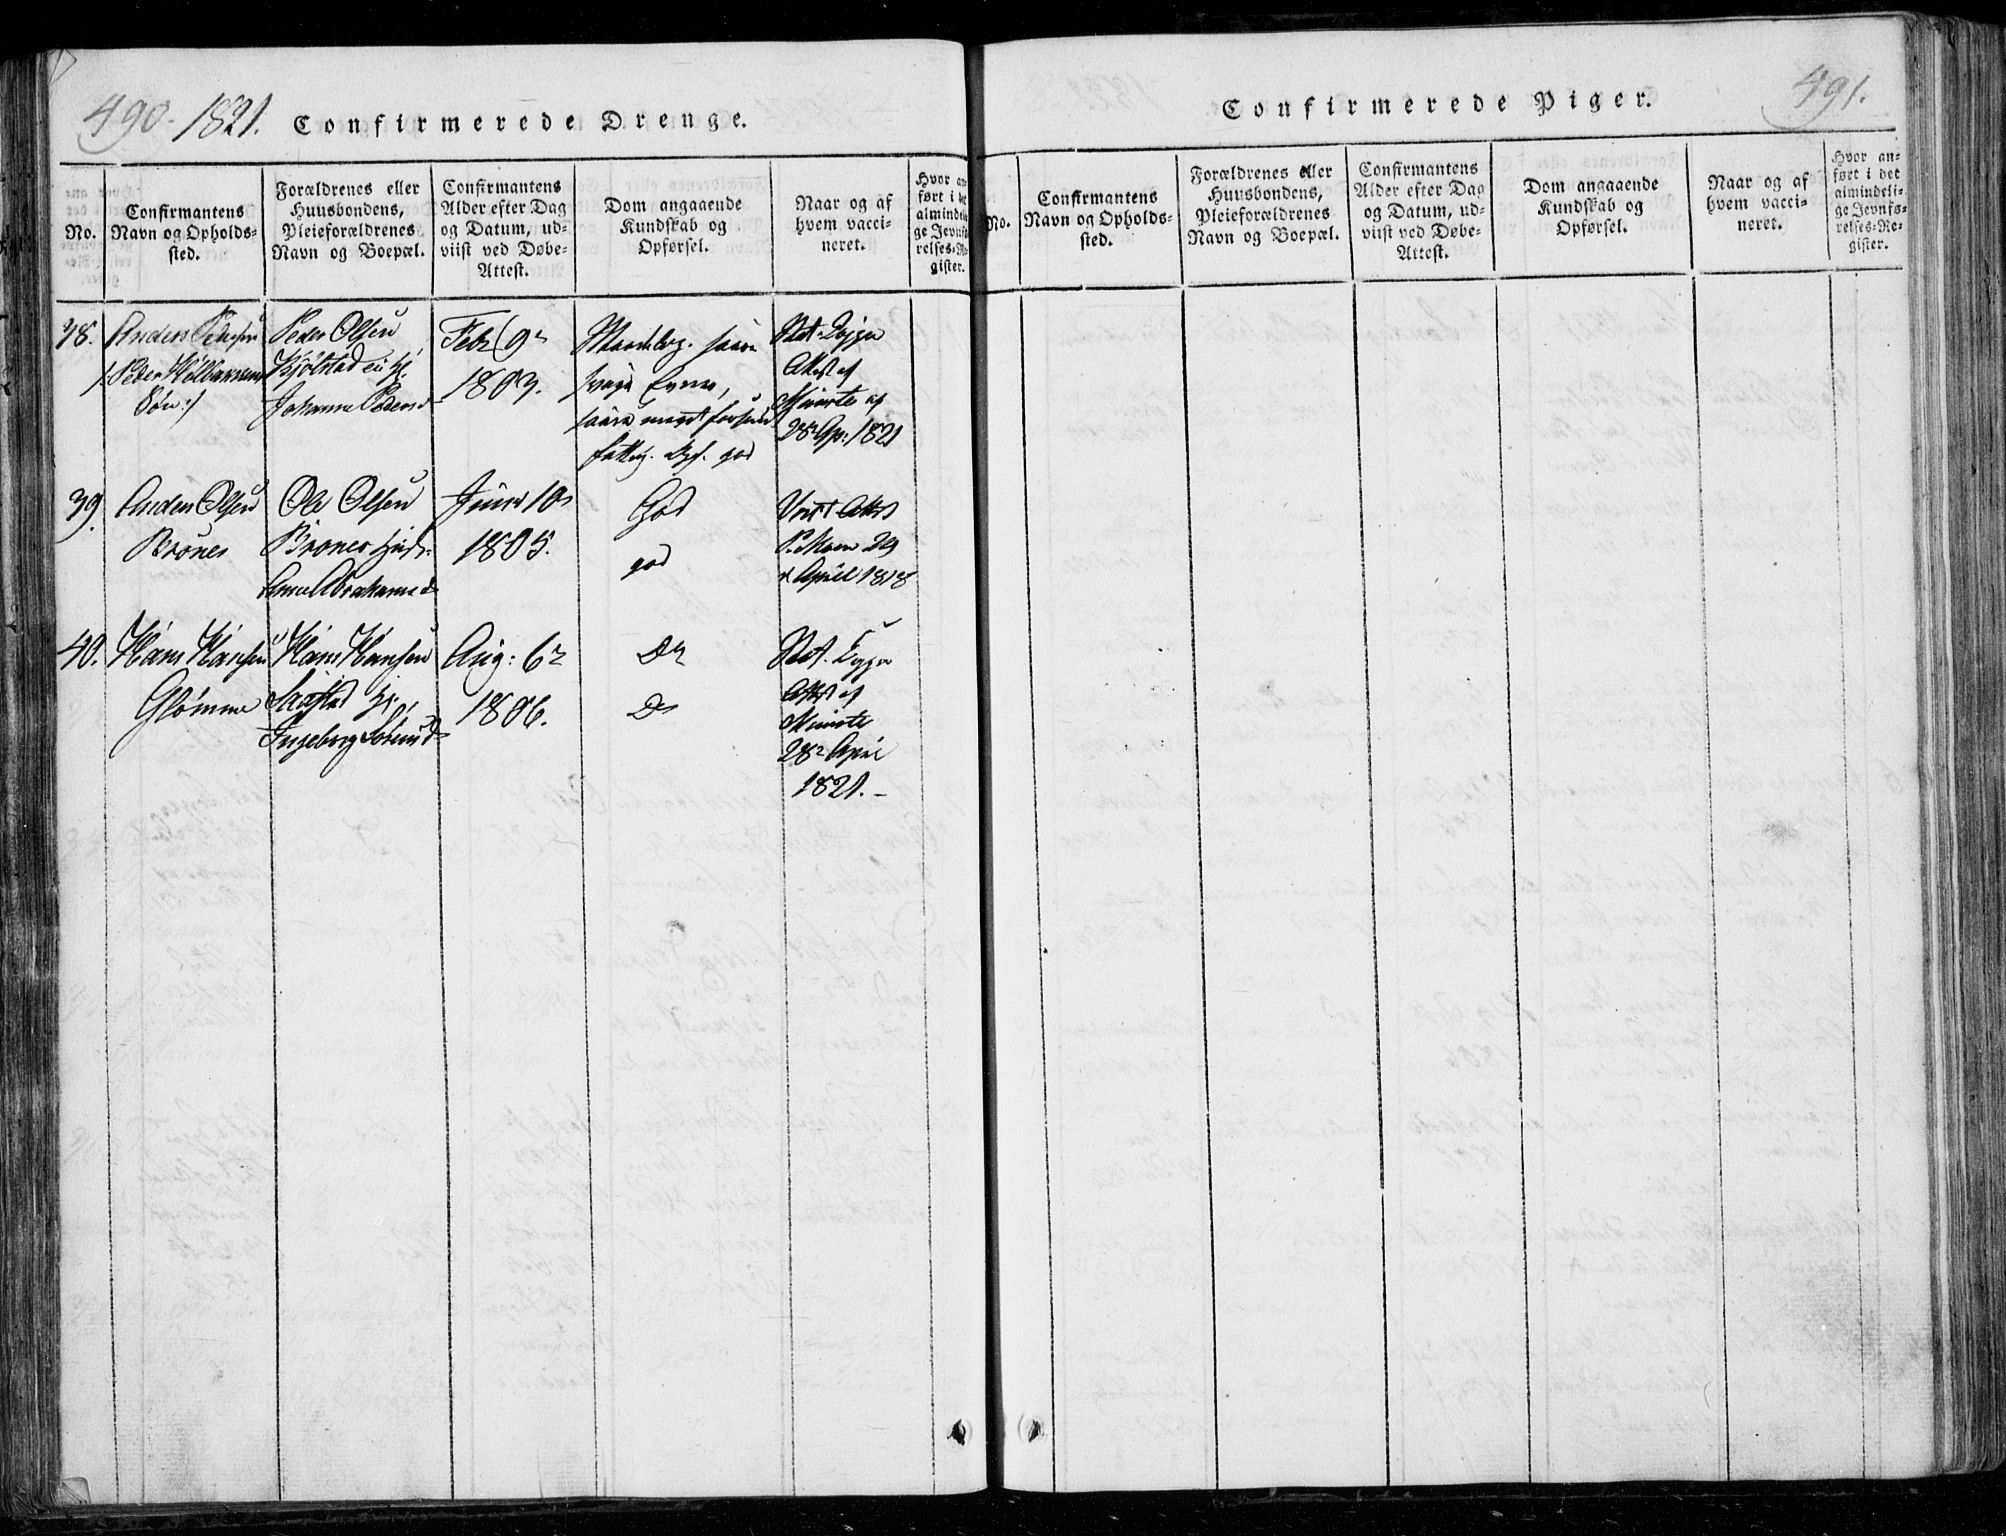 490. 1821. Confirmerede Drenge.
No.
Confirmantens
Navn og Opholds-
sted.
Forældrenes eller
Huusbondens,
Pleieforældrenes
Navn og Boepæl.
Confirmantens
Alder efter Dag
og Datum, ud-
viist ved Døbe-
Attest.
Dom angaaende
Kundskab og
Opførsel.
Naar og af
hvem vacci-
neret.
Hvor an-
ført i det
almindeli-
ge Jevnfø-
relses-Re-
gister.
38.
Anders Pedersen
Søn:/
Peder Olsen
Johanne Pedersd
Febr 9
1803.
svage Evner,
god
Attest af
28 Ap: 1821
39.
Anders Olsen
Brønes
Ole Olsen
Brønes
Anne Abrahamsd
Juni 10
1805.
God
god
Attest
29
April 1818
40.
Hans Hansen
Glomme
Hans Hansen
Ingeborg
Aug: 6
1806.
D
D
Attest af
28 April
1821.-
Confirmerede Piger. 491.
No.
Confirmantens
Navn og Opholds-
sted.
Forældrenes eller
Huusbondens,
Pleieforældrenes
Navn og Boepæl.
Confirmantens
Alder efter Dag
og Datum, ud-
viist ved Døbe-
Attest.
Dom angaaende
Kundskab og
Opførsel.
Naar og af
hvem vacci-
neret.
Hvor an-
ført i det
almindeli-
ge Jevnfø-
relses-Re-
gister.